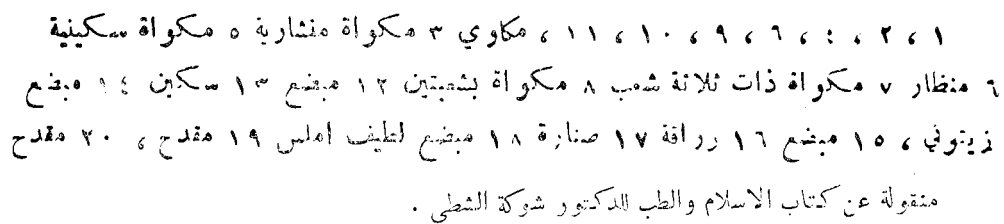 ١ ، ٢ ، ٤ ، ٦ ، ٩ ، ١٠ ، ١١ ، مكاوي ٣ مكواة منشارية ٥ مكواة سكينية
٦ منظار ٧ مكواة ذات ثلاثة شعب ٨ مكواة بشعبتين ١٢ مبضع ١٣ سكين ١٤ مبضع
زيتوني ، ١٥ مبضع ١٦ زراقة ١٧ صنارة ١٨ مبضع لطيف املس ١٩ مقدح ، ٢٠ مقدح
منقولة عن كتاب الاسلام والطب للدكتور شوكة الشطي .